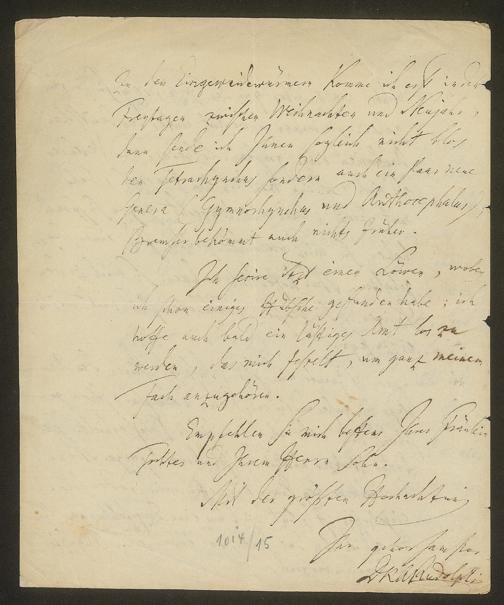 Zu den Eingeweidewürmern komme ich erst in den
Freytagen zwischen Weihnachten und Neujahr,
dann sende ich Ihnen sogleich nicht blos
den Tetrarhynchus sondern auch ein Paar neue
Genera (Gymnorhynchus und Anthocephalus),
Bremser bekömmt auch nichts früher.
Ich secire jetzt einen Löwen, wobey
ich schon einiges Hübsche gefunden habe; ich
hoffe auch bald ein lästiges Amt los zu
werden, das mich fesselt, um ganz meinem
Fach anzugehören.
Empfehlen Sie mich bestens Ihrer Fräulein
Tochter und Ihrem Herrn Sohn.
Mit der größten Hochachtung
Ihr gehorsamster
D. K. A. Rudolphi
1014/15